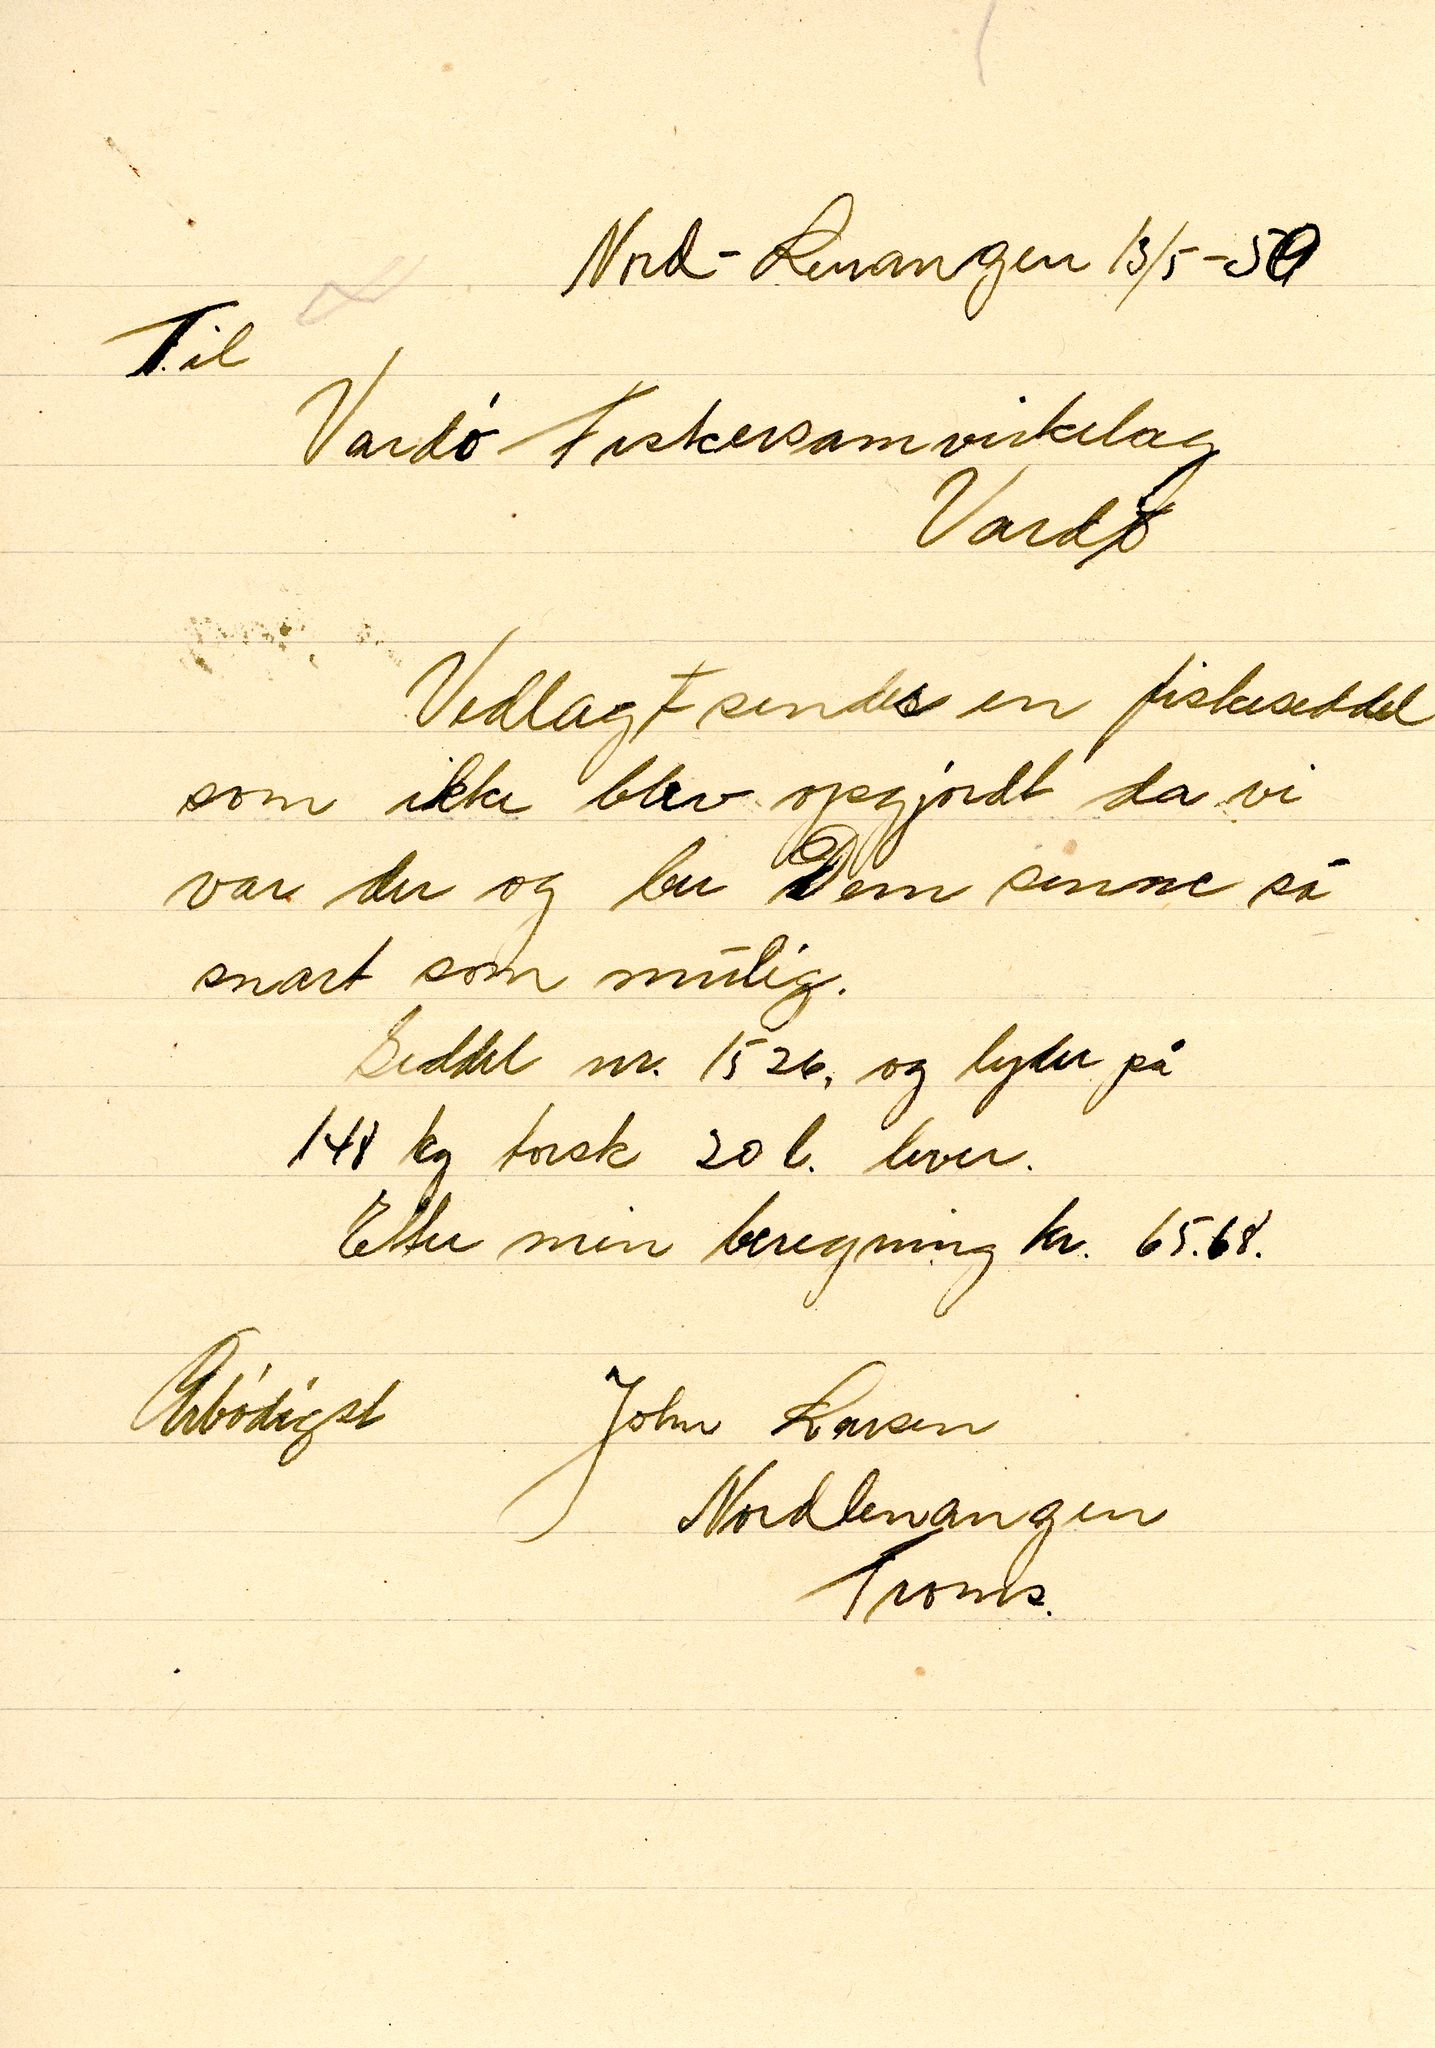 Nord-Lenangen 13/5-50
Til
Vardö Fiskersamvirkelag
Vardö
Vedlagt sendes en fiskeseddel
som ikke blev opgjordt da vi
var der og ber Dem senne så
snart som mulig.
Seddel nr. 1526, og lyder på
148 kg torsk 20 l. lever.
Etter min beregning kr. 65.68.
Arbödigst John Larsen
Nordlenangen
Troms.